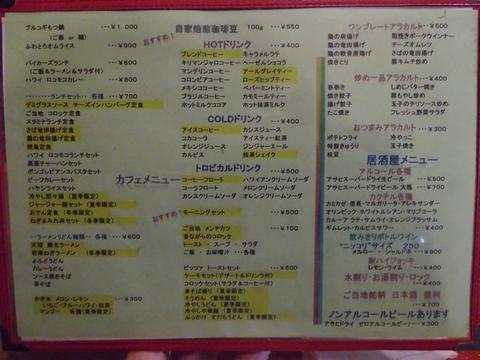 プルコギもつ鍋 ・・・￥1.000
(ご飯 or 麺)
ふわとろオムライス ・・・￥900
バイカーズランチ ・・・￥800
(ご飯＆ラーメン＆サラダ付)
ハワイ ロコモコカレー ・・・￥800
ランチセット・各種 ・・・￥700
デミグラスソース チーズインハンバーグ定食
ご当地 コロッケ定食
スタミナランチ定食
さばの竜田揚げ定食
鶏の竜田揚げ定食
焼魚定食
ハワイ ロコモコランチセット
高菜チャーハンセット
ボンゴレビアンコパスタセット
ビーフカレーセット
ハヤシライスセット
冷やし担々麺(夏季限定)
ジャージャー麺セット(夏季限定)
おでん定食(冬季限定)
ねぎまみれ丼セット(冬季限定)
ラーメンうどん麺類・・各種 ・・・￥600
天理 醤油ラーメン
ぶどううどん
カレーうどん
ソース焼きそば
茶そば
かき氷 メロン・レモン ・・・￥350
いちご・ブルーハワイ・抹茶
マンゴー 各種(夏季限定)
おすすめ！
カフェメニュー
おすすめ！
自家焙煎珈琲豆 100g ・・・￥550
HOTドリンク ・・・￥300
ブレンドコーヒー キャラメルラテ
キリマンジャロコーヒー ヘーゼルショコラ
マンデリンコーヒー アールグレイティー
コロンビアコーヒー ローズヒップティー
メキシンコーヒー ペパーミントティー
ブラジルコーヒー カモミールティー
ホットミルクココア ホット抹茶ミルク
COLDドリンク ・・・￥300
アイスコーヒー カシスジュース
コカコーラ アイスティー紅茶
オレンジジュース ジンジャーエール
カルピス 抹茶シェイク
トロピカルドリンク ・・・￥350
コーヒーフロート ハワイアンクリームソーダ
コーラフロート メロンクリームソーダ
カシスクリームソーダ オレンジクリームソーダ
モーニングセット ・・・￥500
ご当地 メンチカツ ・・・￥100
昔ながらのコロッケ
トースト ・ スープ ・ サラダ
ご飯 ・ お味噌汁 ・・各種
ピッツァ トーストセット ・・・￥600
ケーキセット(デザート＆ドリンク付)
コロッケセット(サラダ＆コーラ付)
茶そば盛り(夏季限定)
そうめん(夏季限定)
冷やしうどん(夏季限定)
冷やし中華麺(夏季限定)
ぶっかけ すだちうどん(夏季限定)
ワンプレートアラカルト ・・・￥500
鶏の唐揚げ 殻挽きポークウインナー
鶏の竜田揚げ チーズオムレツ
鶏の軟骨唐揚げ さばの竜田揚げ
焼きとり 豚キムチ炒め
炒め一品アラカルト ・・・￥400
春巻き しめじバター焼き
焼き餃子 菜もやし炒め
揚げ餃子 玉子のチリソース炒め
たこ焼き フレッシュ野菜サラダ
おつまみアラカルト ・・・￥300
ポテトフライ 冷やっこ
特製きゅうり 玉子焼き
枝豆
居酒屋メニュー
アルコール各種
アサヒスーパードライ生ビール ・・・￥550
アサヒスーパードライビール 大瓶 ・・・￥550
カクテル各種 ・・・￥500
カミカゼ・信長・マルガリータ・アレキサンダー
オリンピック・ホワイトルシアン・マリブコーラ
ギムレット・カルピスサワー ・・・￥400
飲みきりボトルワイン
“ニッコリ”サイズ 250
メルロー ・ シャルドネ ・・・￥600
酎ハイジョッキ
レモン・ライム ・・・￥400
水割り・お湯割り・ロック ・・・￥350
ご当地銘柄 日本酒 徳利 ・・・￥700
ノンアルコールビールあります
アサヒドライ ゼロアルコールビール ・・・￥350